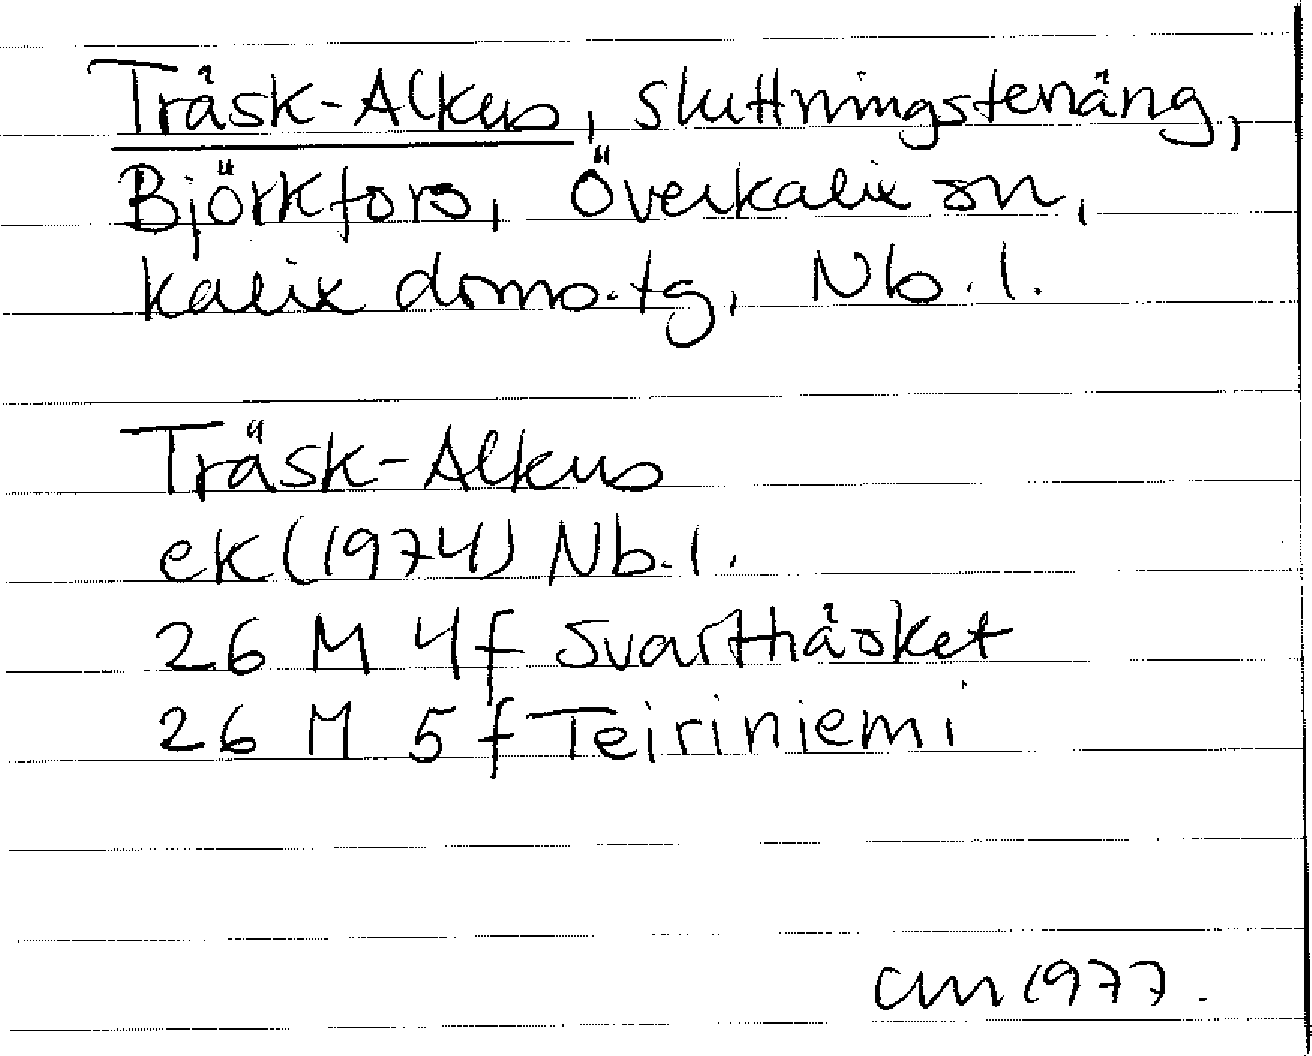 Träsk-Alkus, sluttningsterräng,
Björkfors, Överkalix sn,
Kalix doms.tg, Nb.l.
Träsk-Alkus
ek (1974) Nb.l.
26 M 4f Svartträsket
26 M 5f Teiriniemi
CM 1977.